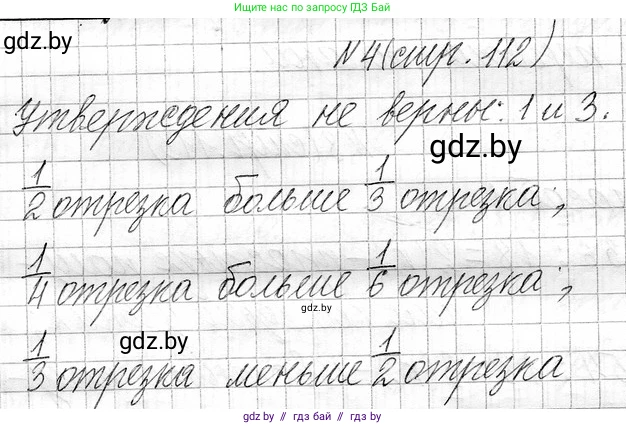 Ищите нас по запросу "ГДЗ Бай" в поиске
gdz.by
N 4 (стр. 112)
Утверждения не верны: 1 и 3.
gdz.by
1/2 отрезка больше 1/3 отрезка;
1/4 отрезка больше 1/6 отрезка;
gdz.by
gdz.by
1/3 отрезка меньше 1/2 отрезка
gdz.by // гдз бай // gdz.by